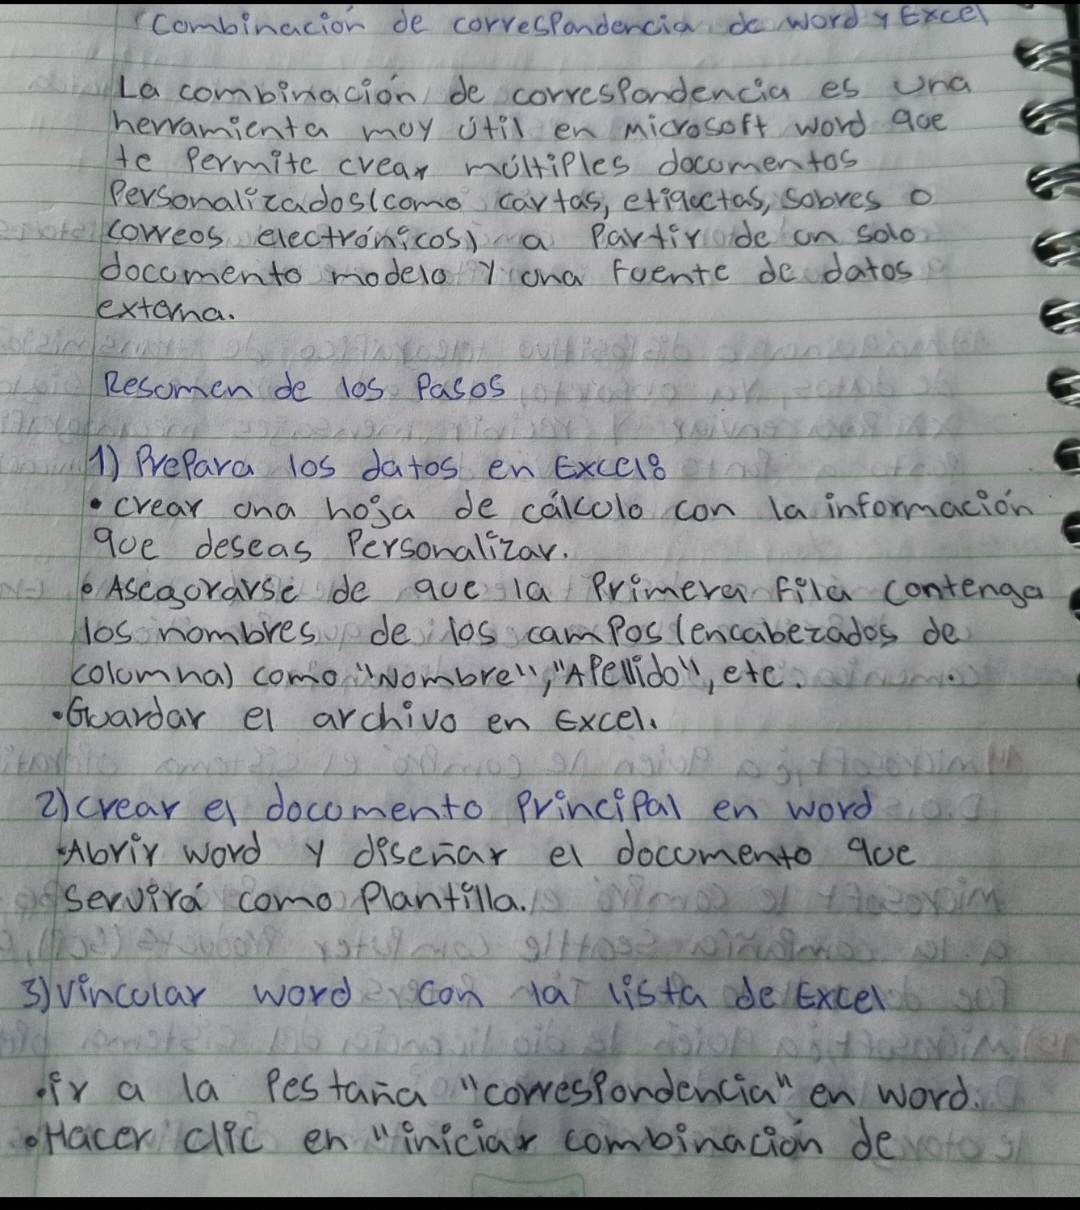 Combinación de correspondencia de word y Excel
La combinación de correspondencia es una
herramienta muy útil en Microsoft word que
te Permite crear múltiples documentos
Personalizados(como cartas, etiquetas, sobres o
correos electrónicos) a Partir de un solo
documento modelo y una fuente de datos
externa.
Resumen de los Pasos
1) Prepara los datos en Excel:
• crear una hoja de cálculo con la información
que deseas Personalizar.
• Asegurarse de que la Primera fila contenga
los nombres de los campos (encabezados de
columna) como "Nombre", "Apellido", etc.
• Guardar el archivo en Excel.
2) crear el documento Principal en word
• Abrir word y diseñar el documento que
servirá como Plantilla.
3) vincular word con la lista de Excel
• ir a la Pestaña "correspondencia" en word.
• Hacer clic en "iniciar combinación de